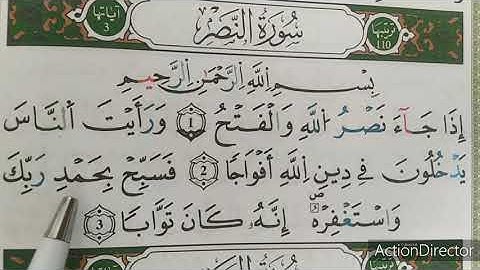 آياتها 3 سُورَةُ النَّصْرِ ترتيبها 110
بِسْمِ اللَّهِ الرَّحْمَٰنِ الرَّحِيمِ
إِذَا جَآءَ نَصْرُ اللَّهِ وَالْفَتْحُ 1 وَرَأَيْتَ النَّاسَ
يَدْخُلُونَ فِي دِينِ اللَّهِ أَفْوَاجًا 2 فَسَبِّحْ بِحَمْدِ رَبِّكَ
وَاسْتَغْفِرْهُ ۚ إِنَّهُ كَانَ تَوَّابًا 3
ActionDirector